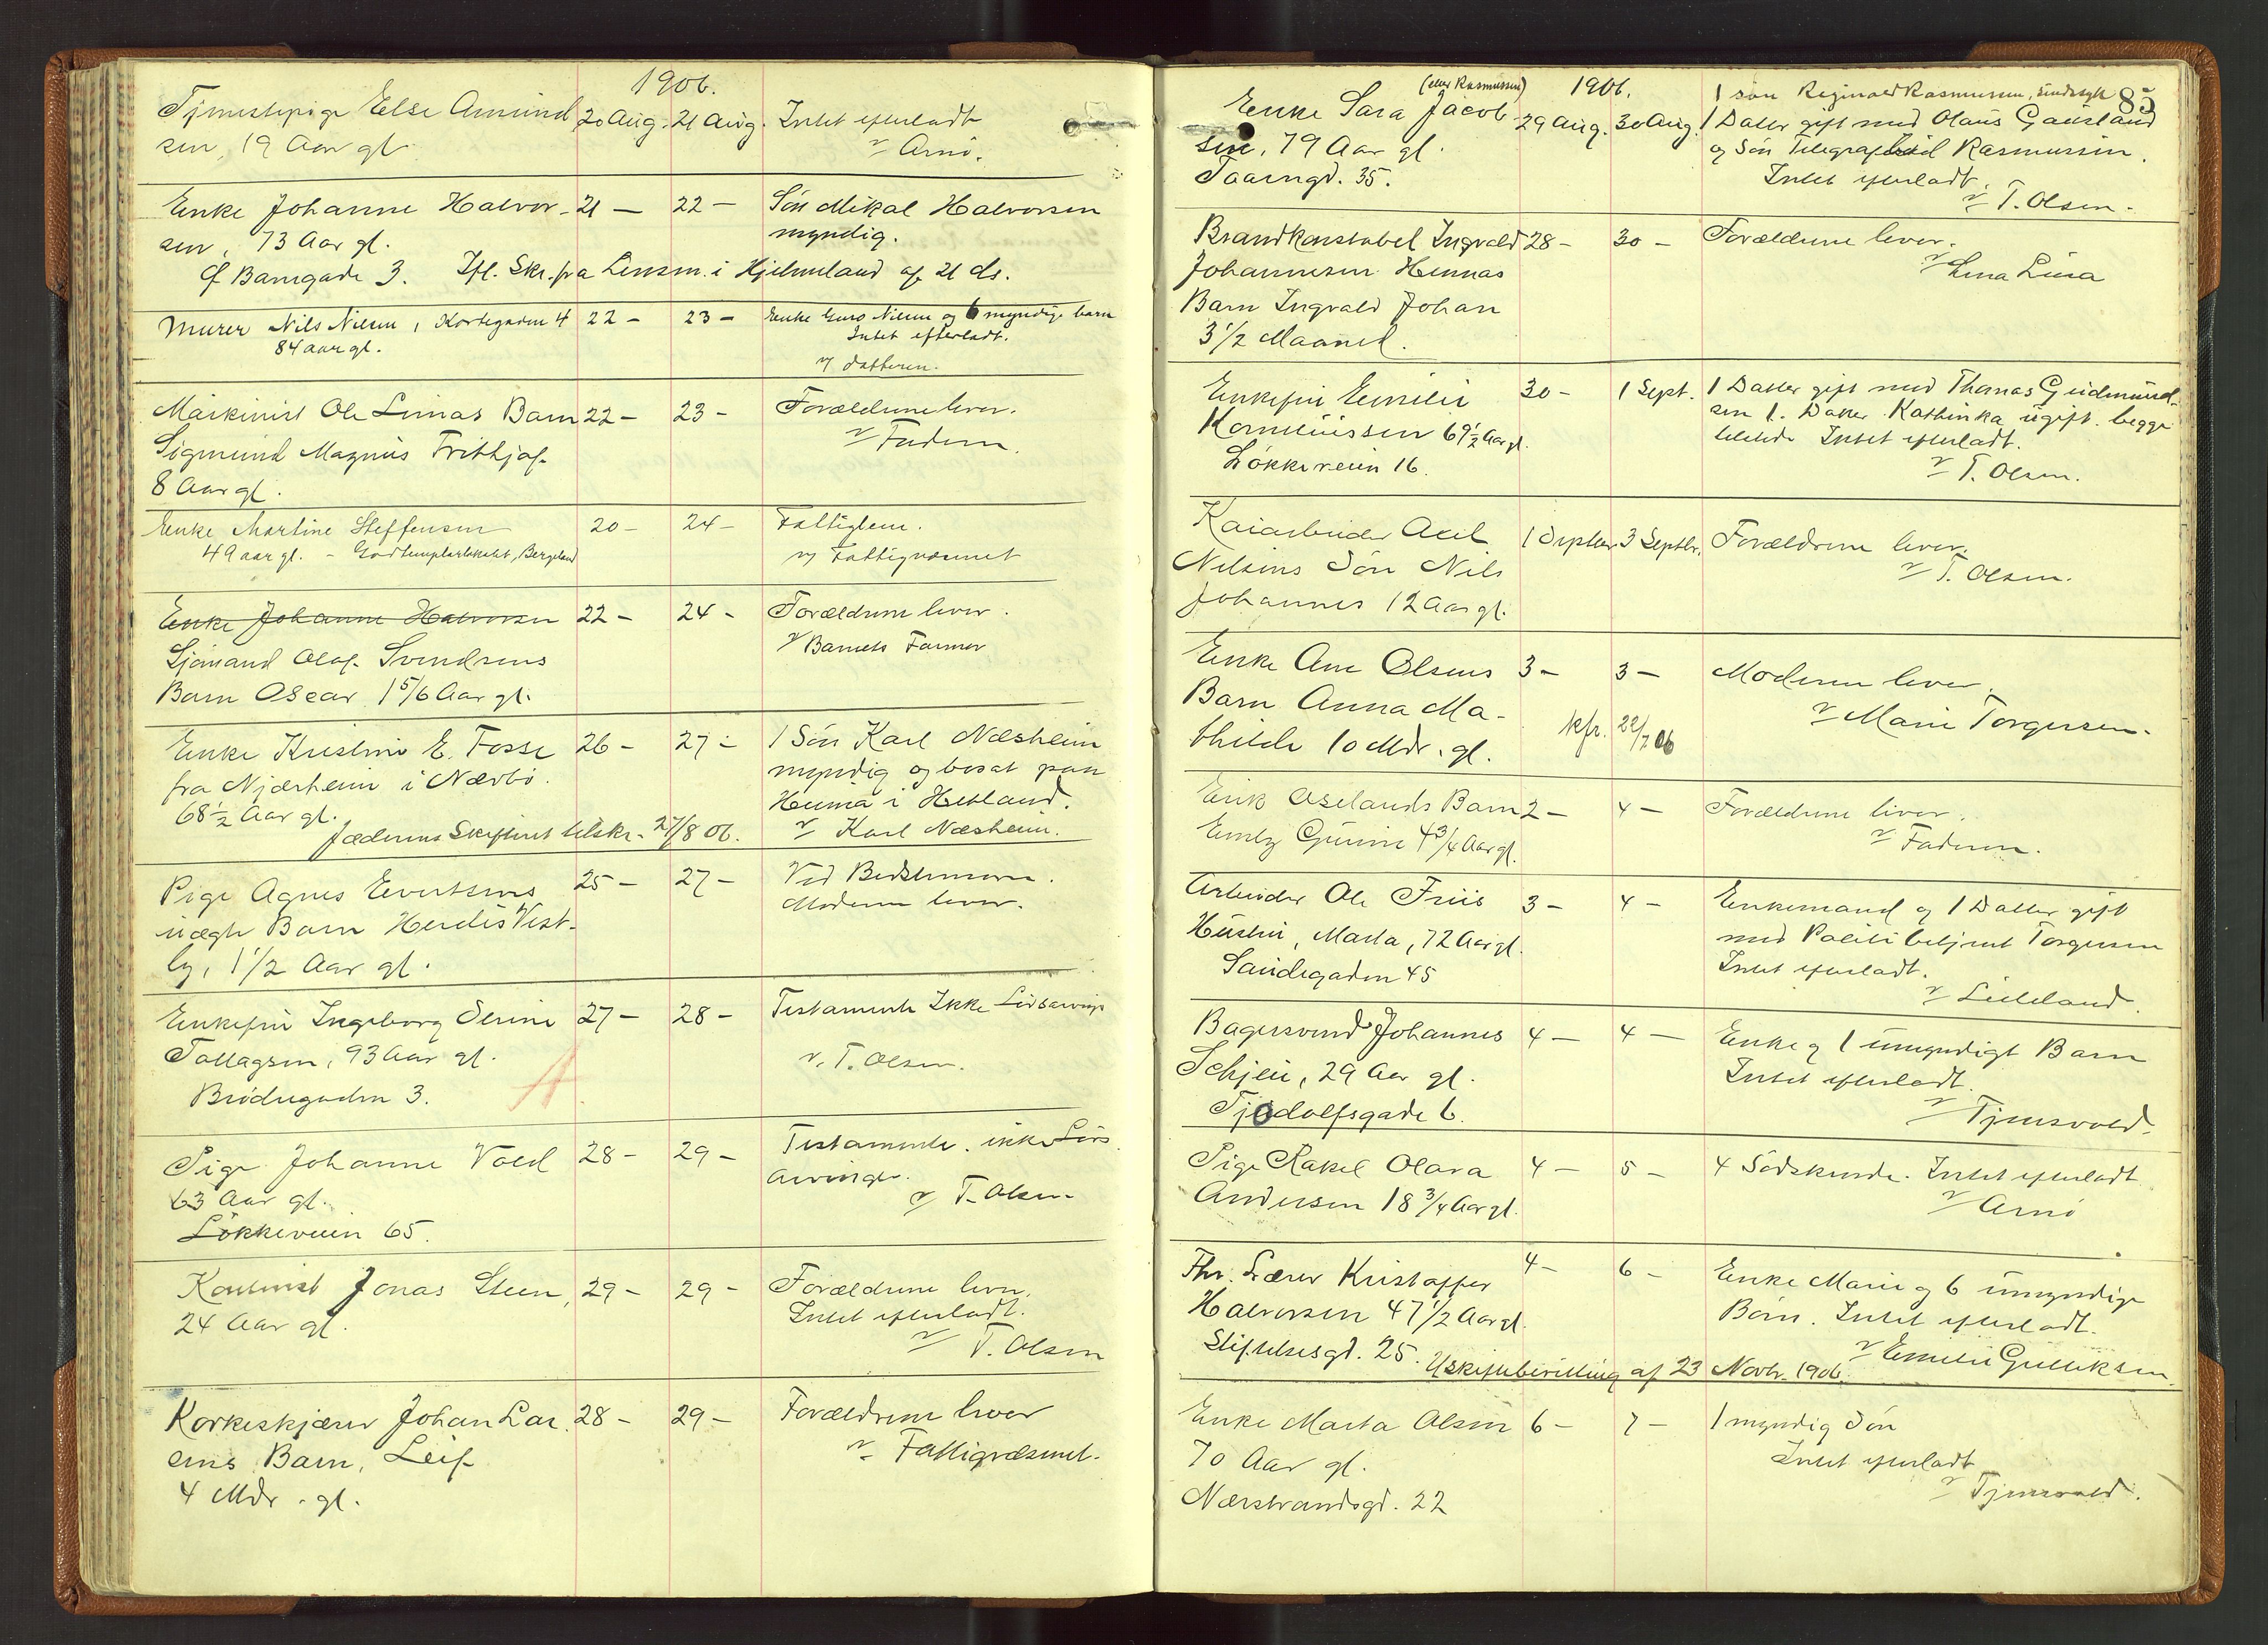 1906.
Tjenestepige Else Amund 20 Aug. 21 Aug. Intet efterladt
sen, 19 Aar gl. v Arnö.
Enke Johanne Halvor- 21 — 22 — Sön Mikal Halvorsen
sen, 73 Aar gl. myndig.
Barngade 3. Ifl. Skr. fra Lensm. i Hjelmeland af 21 ds.
Murer Nils Nilsen, Kortegaden 4 22 - 23 - Enke Guro Nilsen og 6 myndige barn
84 aar gl. Intet efterladt.
v datteren.
Maskinist Ole Limas Barn 22 - 23 - Forældrene lever.
Sigmund Magnus Frithjof v Faderen.
8 Aar gl.
Enke Martine Steffensen 20 - 24 - Fattiglem.
49 aar gl. - Godtemplarlokalet, Bergeland v Fattigvæsenet
Enke Johanne Halvorsen 22 - 24 - Forældrene lever.
Sjömand Olaf Svendsens v Barnets Farmor
Barn Oscar 1 5/6 Aar gl.
Enke Kristine E. Fosse 26 - 27 - 1 Sön Karl Næsheim
fra Njærheim i Nærbö. myndig og bosat paa
68 1/2 Aar gl. i Hetland.
Jæderens Skifteret tilskr. 27/8 06. v Karl Næsheim.
Pige Agnes Evertsens 25 - 27 - Ved Bedstemoren.
uægte Barn Herdis Vest- Moderen lever.
ly, 1 1/2 Aar gl.
Enkefru Ingeborg Serine 27 - 28 - Testamente Ikke Livsarvinge
Tollagsen, 93 Aar gl. v. T. Olsen.
Brödregaden 3.
Pige Johanne Vold 28 - 29 - Testamente. ikke Livs
63 Aar gl. arvinger.
Lökkeveien 65. v T. Olsen
Kontorist Jonas Steen, 29 - 29 - Forældrene lever.
24 Aar gl. Intet efterladt.
v T. Olsen
Korkeskjærer Johan Lar 28 - 29 - Forældrene lever
sens Barn, Leif v Fattigvæsenet.
4 Mdr. gl.
85
(eller Rasmussen) 1906. 1 søn Reginald Rasmussen, sindssyk
Enke Sara Jacob 29 Aug. 30 Aug. 1 Datter gift med Olaus Gausland
sen, 79 Aar gl. og Sön Telegrafbud Rasmussen.
Taarngd. 35. Intet efterladt.
v T. Olsen.
Brandkonstabel Ingvald 28 - 30 - Forældrene lever.
Johannesen Hennas v Lena Lura
Barn Ingvald Johan
3 1/2 Maaned.
Enkefru Emilie 30 - 1 Sept. 1 Datter gift med Thomas Gudmund-
Korneliussen 69 1/2 Aar gl. sen 1 Datter Kathinka ugift. begge
Lökkeveien 16. tilstede Intet efterladt.
v T. Olsen.
Kaiarbeider Axel 1 Septbr 3 Septbr. Forældrene lever.
Nilsens Sön Nils v T. Olsen.
Johannes 12 Aar gl.
Enke Ane Olsens 3 - 3 - Moderen lever.
Barn Anna Ma- kfr. 22/7 06 v Marie Torgersen.
thilde 10 Mdr. gl.
Erik Oselands Barn 2 - 4 - Forældrene lever.
Emly Gurine 4 3/4 Aar gl. v Faderen.
Arbeider Ole Friis 3 - 4 - Enkemand og 1 Datter gift
Hustru, Marta, 72 Aar gl. med Politibetjent Torgersen
Sandegaden 45 Intet efterladt.
v Lieland.
Bagersvend Johannes 4 — 4 — Enke og 1 umyndigt Barn
Schjeie, 29 Aar gl. Intet efterladt.
Tjodolfsgade 6. v Tjensvold.
Pige Rakel Olava 4 — 5 - 4 Södskende. Intet efterladt
Andersen 18 3/4 Aar gl. v Arnö
Fhv. Lærer Kristoffer 4 - 6 - Enke Marie og 6 umyndige
Halvorsen 47 1/2 Aar gl. Börn. Intet efterladt.
Stiftelsesgd. 25. v Emilie Gulliksen.
Uskiftebevilling af 23 Novbr. 1906.
Enke Marta Olsen 6 - 7 - 1 myndig Sön
70 Aar gl. Intet efterladt
Nærstrandsgd. 22 v Tjensvold.